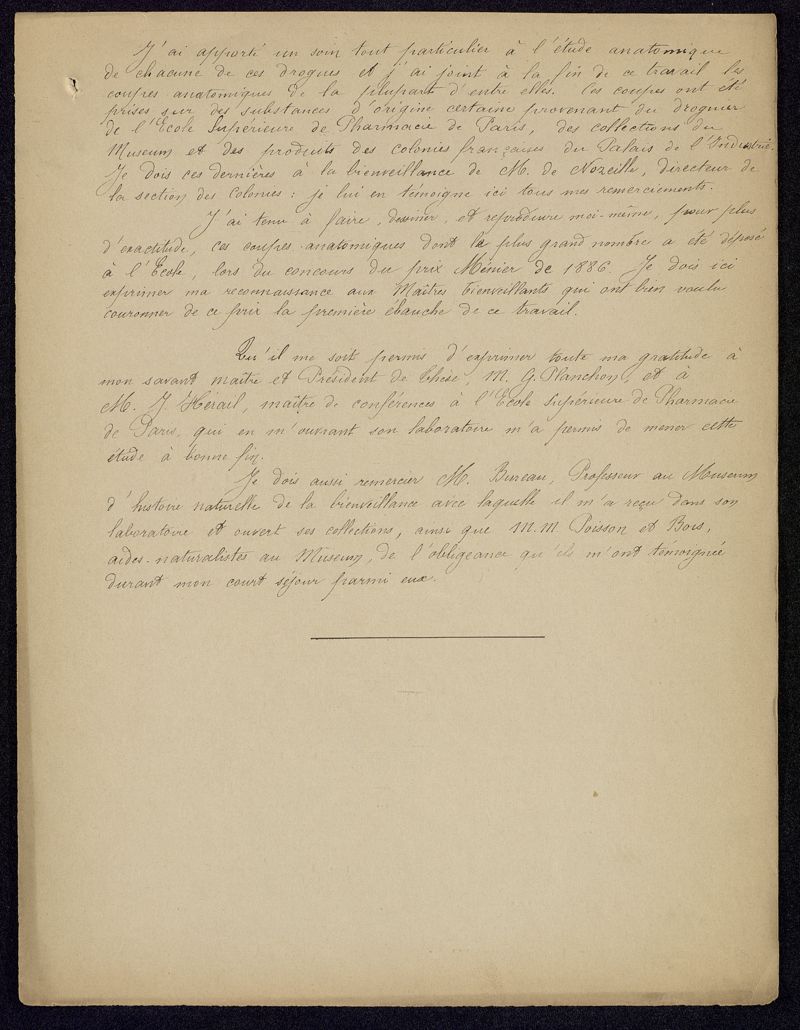 J'ai apporté un soin tout particulier à l'étude anatomique
de chacune de ces drogues et j'ai joint à la fin de ce travail les
coupes anatomiques de la plupart d'entre elles. Ces coupes ont été
prises sur des substances d'origine certaine provenant du droguier
de l'Ecole Supérieure de Pharmacie de Paris, des collections du
Museum et des produits des colonies françaises du Palais de l'Industrie.
Je dois ces dernières à la bienveillance de M. de Nozeille, directeur de
la section des Colonies : je lui en témoigne ici tous mes remerciements.
J'ai tenu à faire, dessiner, et reproduire moi-même, pour plus
d'exactitude, ces coupes anatomiques dont la plus grand nombre a été déposé
à l'Ecole, lors du concours du prix Ménier de 1886. Je dois ici
exprimer ma reconnaissance aux Maîtres bienveillants qui ont bien voulu
couronner de ce prix la première ébauche de ce travail.
Qu'il me soit permis d'exprimer toute ma gratitude à
mon savant maître et Président de thèse, M. G. Planchon, et à
M. J Hérail, maître de conférences à l'Ecole Supérieure de Pharmacie
de Paris, qui en m'ouvrant son laboratoire m'a permis de mener cette
étude à bonne fin.
Je dois aussi remercier M. Bureau, Professeur au Museum
d'histoire naturelle de la bienveillance avec laquelle il m'a reçu dans son
laboratoire et ouvert ses collections, ainsi que M.M. Poisson et Bois,
aides-naturalistes au Museum, de l'obligeance qu'ils m'ont témoignée
durant mon court séjour parmi eux.